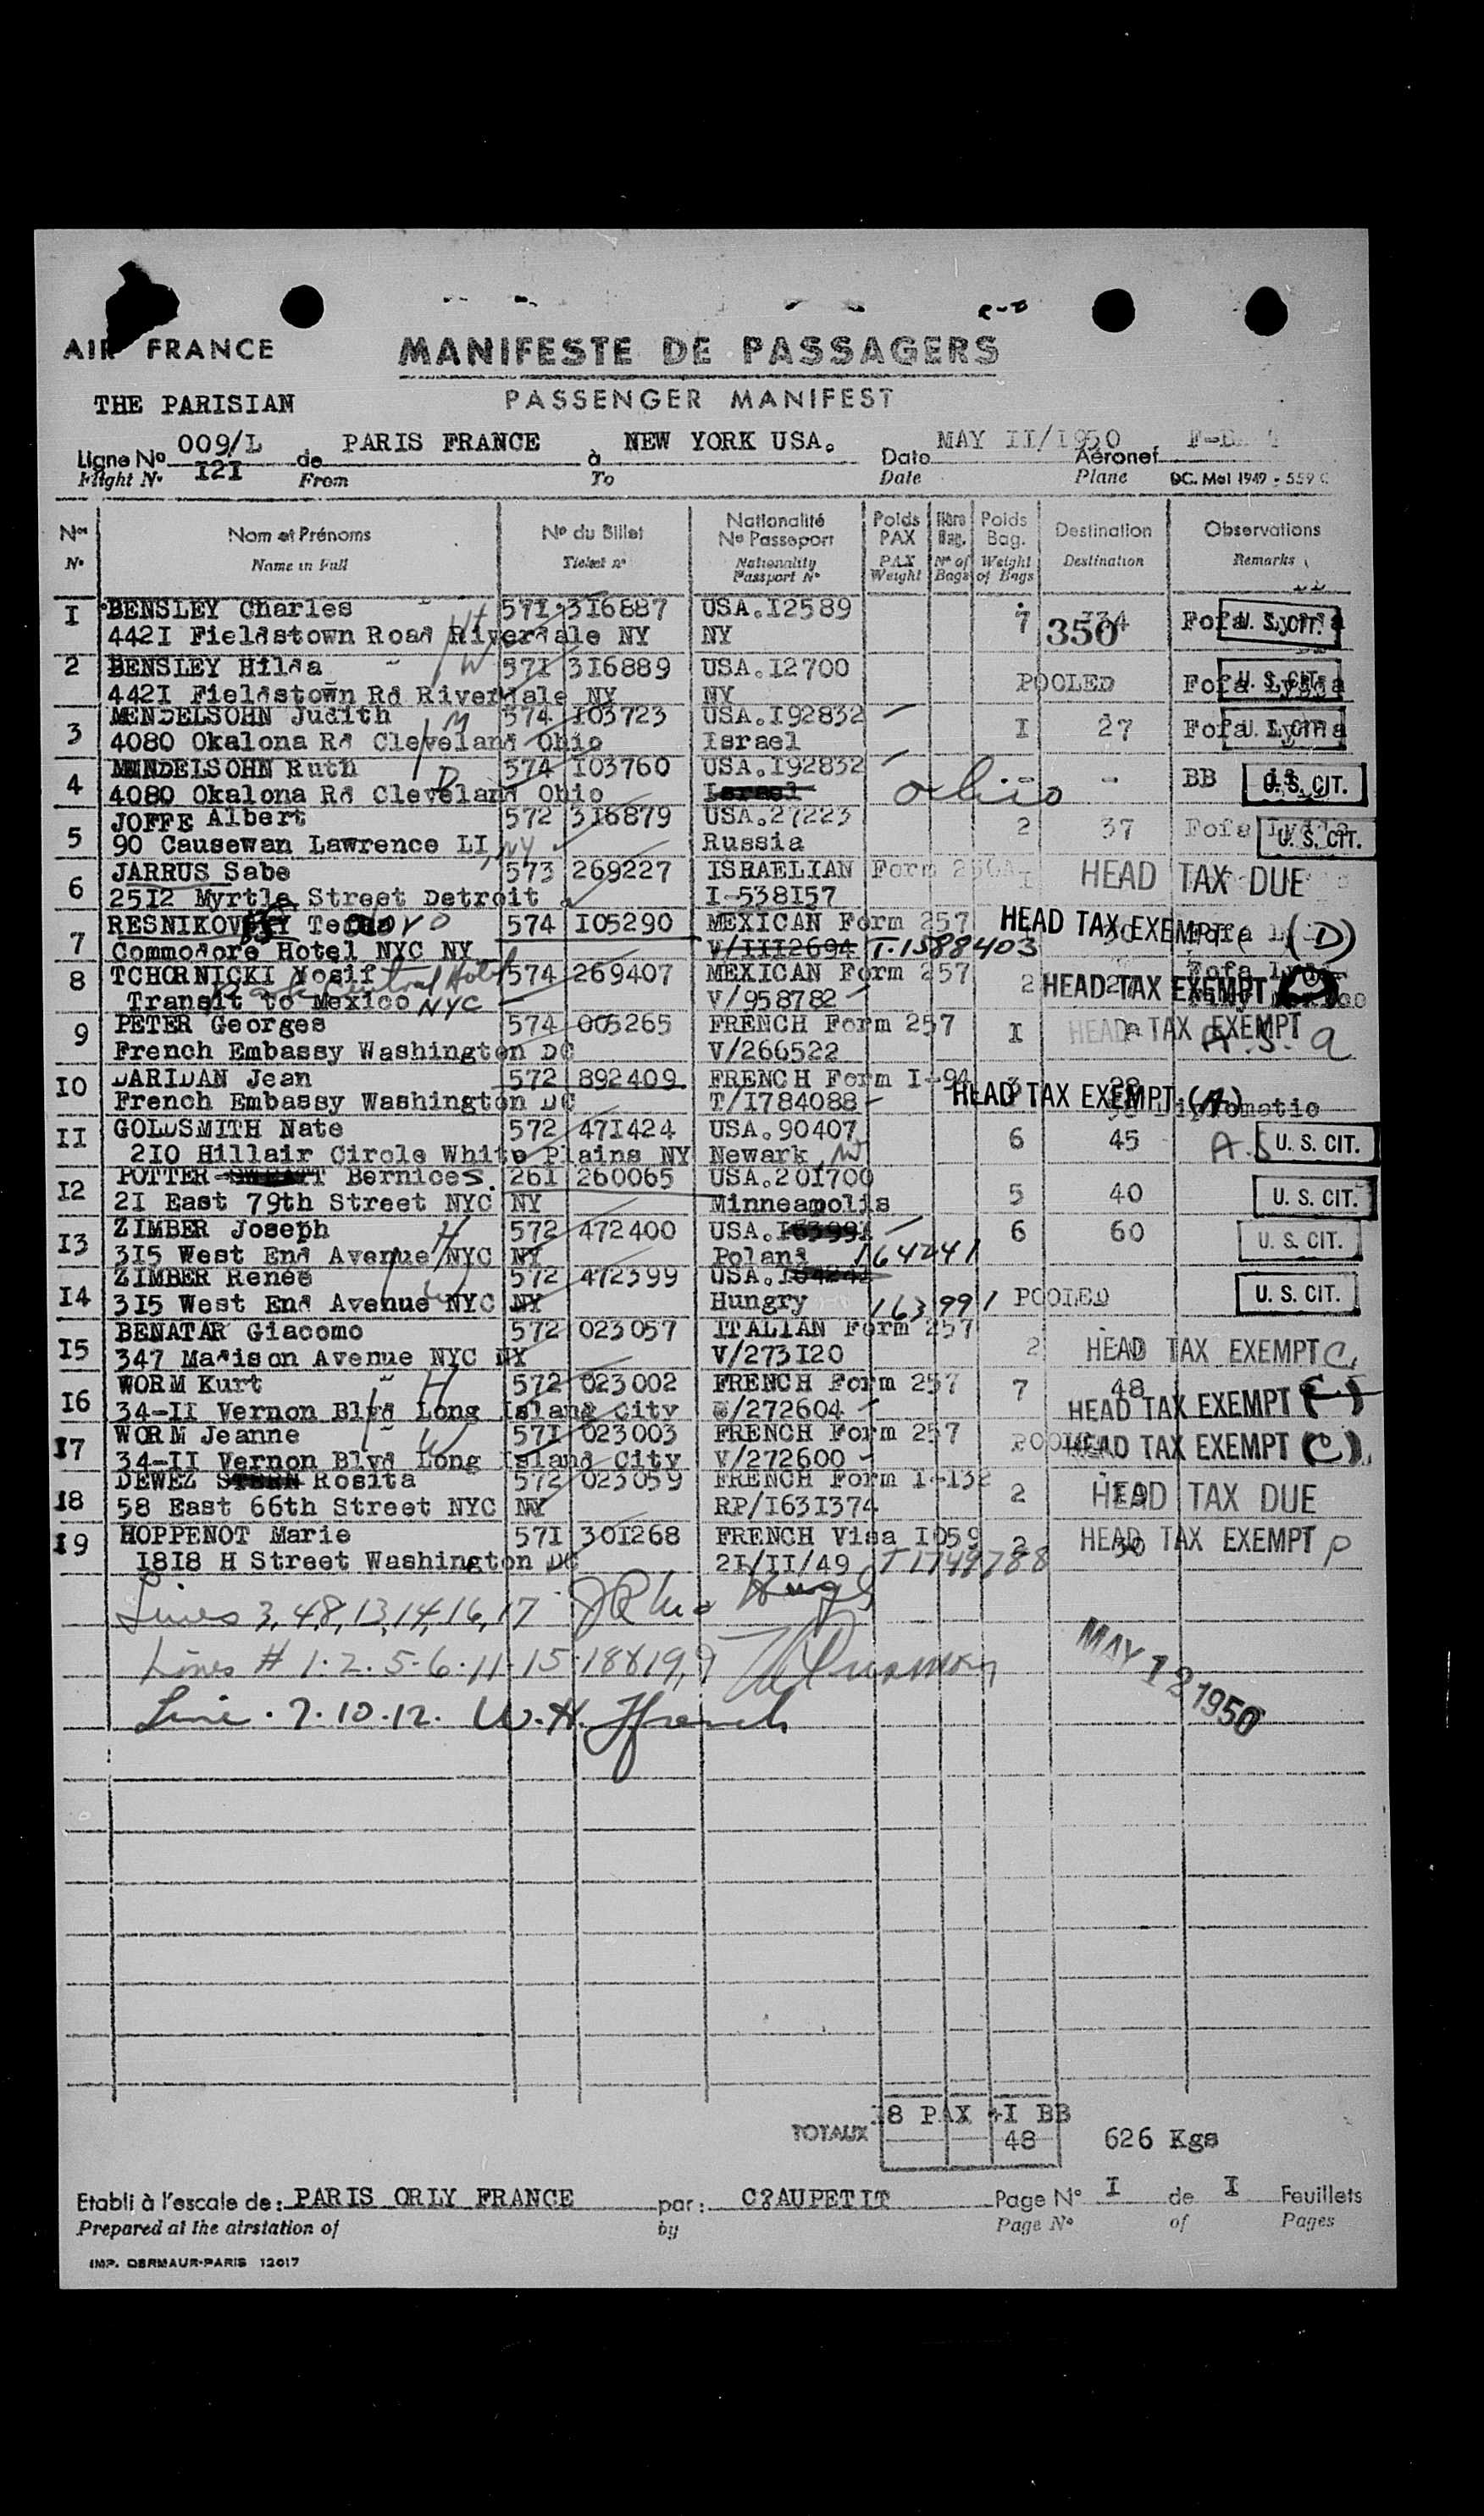 AIR FRANCE
MANIFESTE DE PASSAGERS
PASSENGER MANIFEST
THE PARISIAN
Ligne No 009/L de PARIS FRANCE à NEW YORK USA. Date MAY II/1950 Aéronef
Flight No I2I From To Date Plane DC. Mai 1949 - 559
Nos Nom et Prénoms No du Billet Nationalité No Passeport Poids PAX Nbre Bag. Poids Bag. Destination Observations
No Name in Full Ticket no Nationality Passport No PAX Weight No of Bags Weight of Bags Destination Remarks
I BENSLEY Charles 571 316887 USA.I2589 7 350 Fofa U. S. CIT.
442I Fieldstown Road Riverdale NY NY
2 BENSLEY Hilda 571 316889 USA.I2700 POOLED Fofa Lydda U. S. CIT.
442I Fieldstown Rd Riverdale NY NY
3 MENDELSOHN Judith 574 I03723 USA.I92832 I 27 Fofa Lydda U. S. CIT.
4080 Okalona Rd Cleveland Ohio Israel
4 MENDELSOHN Ruth 574 I03760 USA.I92832 - - BB U. S. CIT.
4080 Okalona Rd Cleveland Ohio Israel
5 JOFFE Albert 572 316879 USA.27223 2 37 Fofa Lydda U. S. CIT.
90 Causewan Lawrence LI, NY Russia
6 JARRUS Sabe 573 269227 ISRAELIAN Form 256A I HEAD TAX DUE
25I2 Myrtle Street Detroit I-538I57
7 574 I05290 MEXICAN Form 257 HEAD TAX EXEMPT (D)
Commodore Hotel NYC NY V/III2694 T.1588403
8 TCHORNICKI Yosif 574 269407 MEXICAN Form 257 2 HEAD TAX EXEMPT Fofa
Transit to Mexico Park Central Hotel NYC V/958782
9 PETER Georges 574 005265 FRENCH Form 257 I HEAD TAX EXEMPT a
French Embassy Washington DC V/266522
I0 DARIDAN Jean 572 892409 FRENCH Form I-94 3 HEAD TAX EXEMPT (A)
French Embassy Washington DC T/I784088 Diplomatic
II GOLDSMITH Nate 572 471424 USA.90407 6 45 A.S U. S. CIT.
2I0 Hillair Circle White Plains NY Newark, NJ
I2 POTTER Bernice S. 26I 260065 USA.20I700 5 40 U. S. CIT.
2I East 79th Street NYC NY Minneapolis
I3 ZIMBER Joseph H 572 472400 USA. 6 60 U. S. CIT.
3I5 West End Avenue NYC NY Poland 164241
I4 ZIMBER Renée W 572 472399 USA. POOLED U. S. CIT.
3I5 West End Avenue NYC NY Hungry 163991
I5 BENATAR Giacomo 572 023057 ITALIAN Form 257 2 HEAD TAX EXEMPT C.
347 Madison Avenue NYC NY V/273I20
I6 WORM Kurt H 572 023002 FRENCH Form 257 7 48 HEAD TAX EXEMPT
34-II Vernon Blvd Long Island City V/272604
I7 WORM Jeanne W 571 023003 FRENCH Form 257 POOLED HEAD TAX EXEMPT (C)
34-II Vernon Blvd Long Island City V/272600
I8 DEWEZ STERN Rosita 572 023059 FRENCH Form I-I32 2 HEAD TAX DUE
58 East 66th Street NYC NY RP/I63I374
I9 HOPPENOT Marie 571 30I268 FRENCH Visa I059 2 30 HEAD TAX EXEMPT P
I8I8 H Street Washington DC 2I/II/49 T1749788
Lines 3,4,8,13,14,16,17
Lines # 1.2.5.6.11.15.18&19,9
Line. 7.10.12. W.H. Ffrench
MAY 12 1950
TOTAUX I8 PAX +I BB
48 626 Kgs
Etabli à l'escale de: PARIS ORLY FRANCE par: C?AUPETIT Page No I de I Feuillets
Prepared at the airstation of by Page No of Pages
IMP. DERMAUR-PARIS 12017